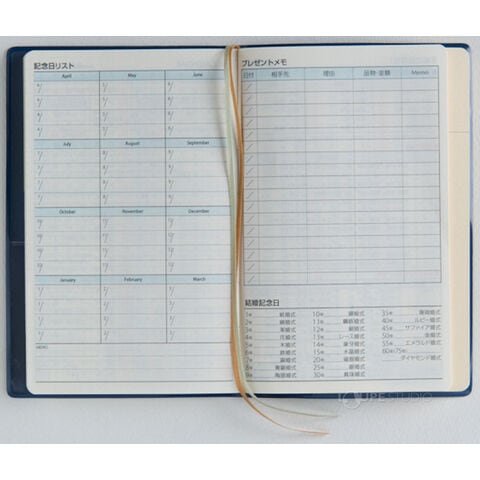 記念日リスト
April May June
4/ 5/ 6/
4/ 5/ 6/
4/ 5/ 6/
4/ 5/ 6/
July August September
7/ 8/ 9/
7/ 8/ 9/
7/ 8/ 9/
7/ 8/ 9/
October November December
10/ 11/ 12/
10/ 11/ 12/
10/ 11/ 12/
10/ 11/ 12/
January February March
1/ 2/ 3/
1/ 2/ 3/
1/ 2/ 3/
1/ 2/ 3/
MEMO
プレゼントメモ
日付 相手先 理由 品物・金額 Memo
結婚記念日
1年 紙婚式 10年 錫婚式 35年 珊瑚婚式
2年 綿婚式 11年 鋼鉄婚式 40年 ルビー婚式
3年 革婚式 12年 絹婚式 45年 サファイア婚式
4年 花婚式 13年 レース婚式 50年 金婚式
5年 木婚式 14年 象牙婚式 55年 エメラルド婚式
6年 鉄婚式 15年 水晶婚式 60年(75年)
7年 銅婚式 20年 磁器婚式 ダイヤモンド婚式
8年 青銅婚式 25年 銀婚式
9年 陶器婚式 30年 真珠婚式
STUDIO